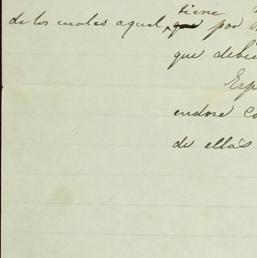 tiene
de los cuales aquel, que por
que debie
Esp
endose co
de ellas